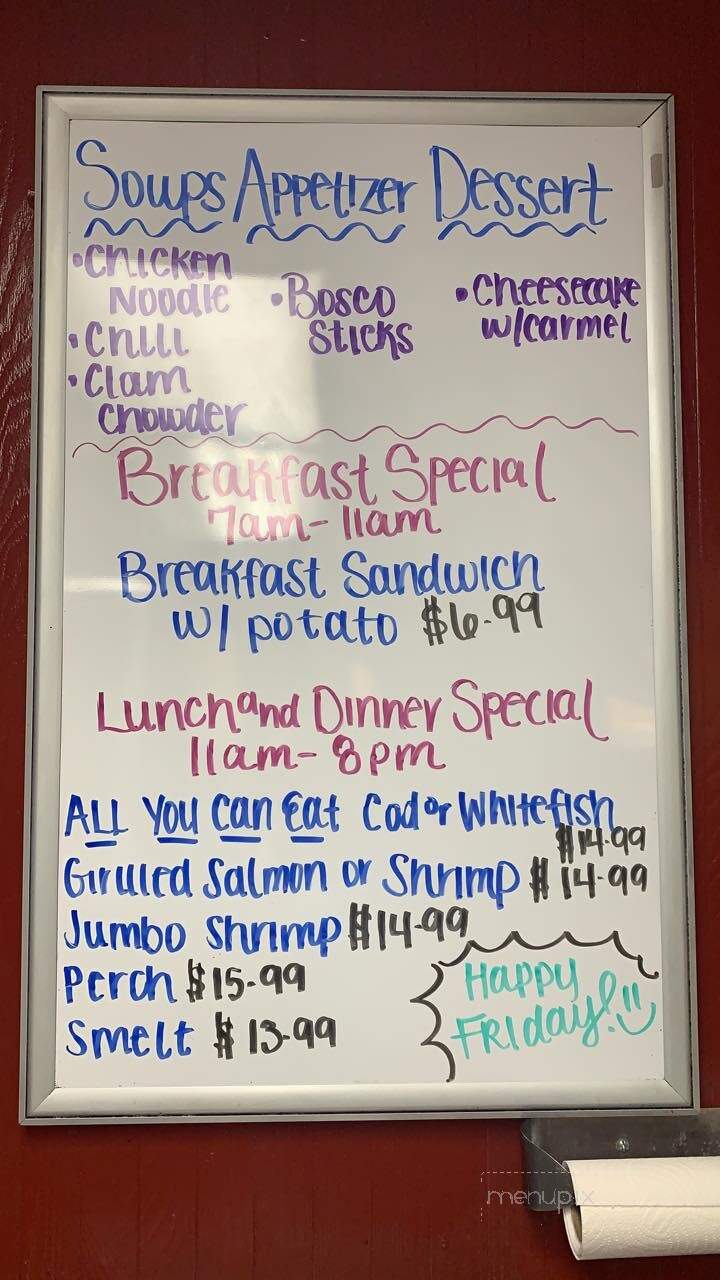 Soups Appetizer Dessert
• Chicken Noodle
• Chili
• Clam Chowder
• Bosco Sticks
• Cheesecake w/carmel
Breakfast Special
7am-11am
Breakfast Sandwich
w/ potato $6.99
Lunch and Dinner Special
11am-8pm
All You Can Eat Cod or Whitefish
$14.99
Grilled Salmon or Shrimp $14.99
Jumbo Shrimp $14.99
Perch $15.99
Smelt $13.99
Happy
Friday!
menupix